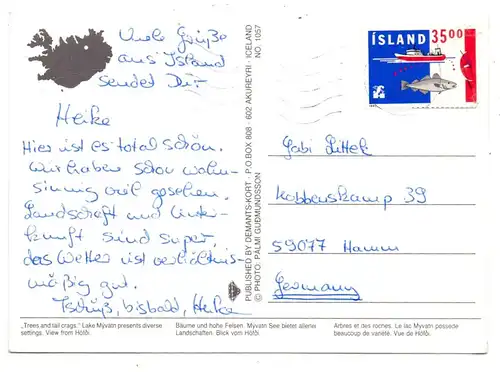 Viele Grüße
aus Island
sendet Dir
Heike
Hier ist es total schön.
Wir haben schon wahn-
sinnig viel gesehen.
Landschaft und Unter-
kunft sind super,
das Wetter ist verhältnis-
mäßig gut.
Tschüß, bis bald, Heike
PUBLISHED BY DEMANTS-KORT · P.O.BOX 808 · 602 AKUREYRI · ICELAND
NO. 1057
© PHOTO: PÁLMI GUÐMUNDSSON
ÍSLAND 35.00
Gabi
Kobbenskamp 39
59077 Hamm
Germany
„Trees and tall crags." Lake Mývatn presents diverse
settings. View from Höfði.
Bäume und hohe Felsen. Mývatn See bietet allerlei
Landschaften. Blick vom Höfði.
Arbres et des roches. Le lac Mývatn possède
beaucoup de variété. Vue de Höfði.